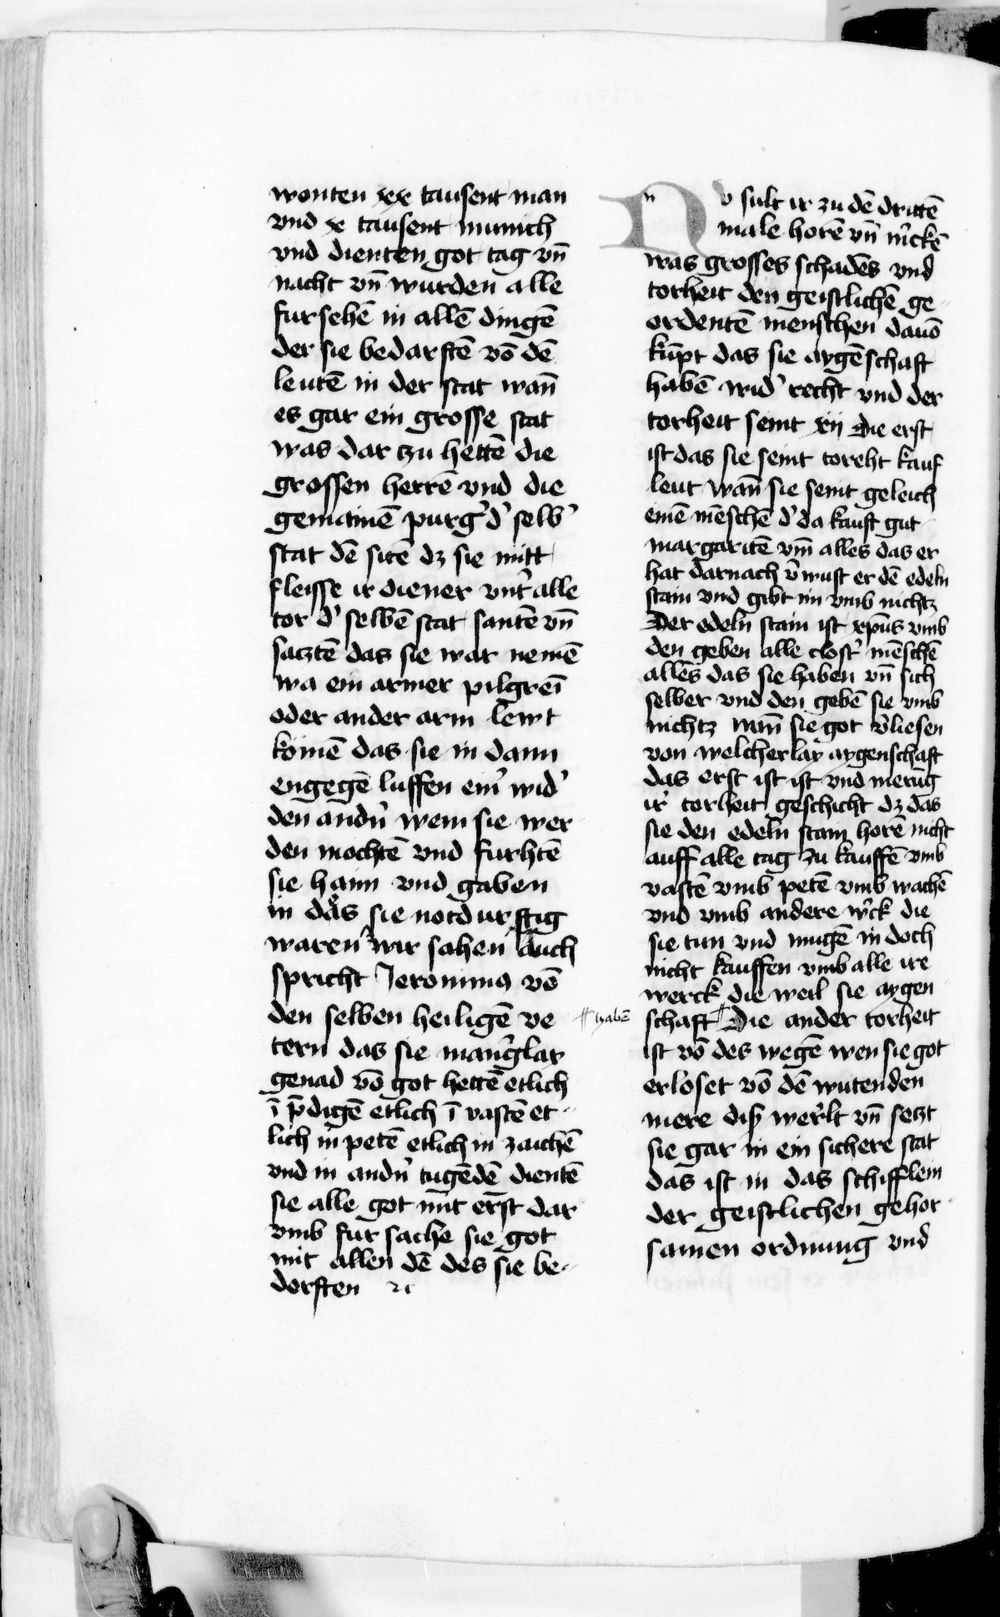 wonten xx tausent man
vnd x tausent munich
vnd dienten got tag vn̄
nacht vn̄ wurden alle
fursehē in allē dingē
der sie bedarftē vō dē
leutē in der stat wan̄
es gar ein grosse stat
was dar tzu hettē die
grossen herrē vnd die
gemainē purg̓ d̓ selb̓
stat dē sitē dz sie mitt
fleisse ir diener vnt̓ alle
tor d̓ selbē stat santē vn̄
saztē das sie war nemē
wa ein armer pilgreī
oder ander arm lewt
komē das sie in dann
engegē luffen ein̓ wid̓
den andn̓ wem sie wer
den mochtē vnd furhtē
sie haim vnd gaben
in das sie notdurftig
waren wir sahen auch
spricht Jeronimus vō
den selben heiligē ve
tern das sie mang̓lay
genad vō got hettē etlich
ī p̄digē etlich ī vastē et
lich in petē etlich in zaichē
vnd in andn̓ tugēdē dientē
sie alle got mit erst dar
vmb fursache sie got
mit allen dē des sie be
dorften ꝛc
Nv sult ir zu dē drittē
male horē vn̄ m̓ckē
was grosses schadēs vnd
torheit den geistlichē ge
ordentē menschen dauō
kūpt das sie aygēschaft
habē wid̓ recht vnd der
torheit seint xij die erst
ist das sie seint toreht kauf
leut wan̄ sie seint geleich
einē mēschē d̓ da kauft gut
margaritē vm̄ alles das er
hat darnach v̓wust er dē edeln
stain vnd gibt im vmb nichtz
Der edeln̄ stain ist xp̄us vmb
den geben alle clost̓ mēschē
alles das sie haben vn̄ sich
selber vnd den gebē sie vmb
nichtz wan̄ sie got v̓liesen
von welcherlay aygenschaft
das erst ist ist vnd merūg
ir̓ torheit geschicht dz das
sie den edeln stain horē nicht
auff alle tag zu kauffē vmb
vastē vmb petē vmb wachē
vnd vmb andere w̓ck die
sie tun vnd mugē in doch
nicht kauffen vmb alle ire
werck die weil sie aygen
schaft Die ander torheit
habē
ist vō des wegē wen sie got
erloset vō dē wutenden
mere diß werlt vn̄ setzt
sie gar in ein sichere stat
das ist in das schifflein
der geistlichen gehor
samen ordnung vnd